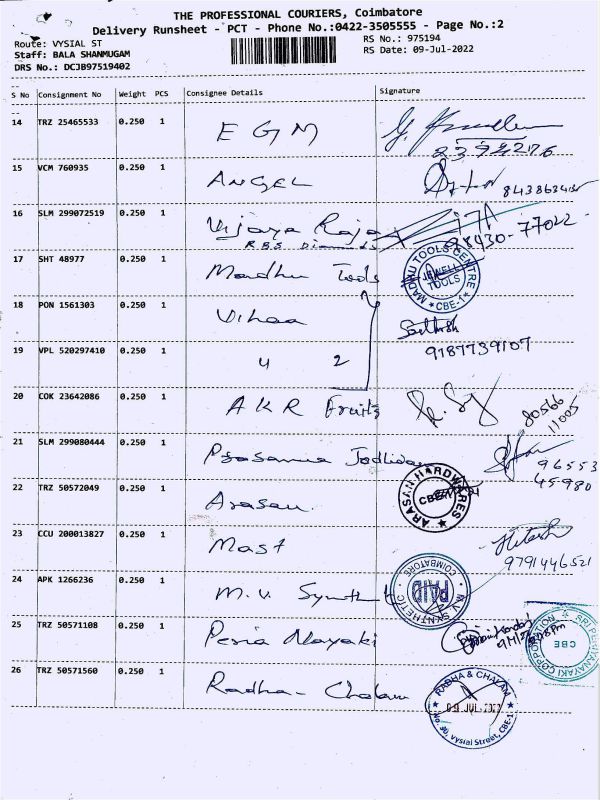 THE PROFESSIONAL COURIERS, Coimbatore
Delivery Runsheet - PCT - Phone No.:0422-3505555 - Page No.:2
Route: VYSIAL ST
RS No.: 975194
Staff: BALA SHANMUGAM
RS Date: 09-Jul-2022
DRS No.: DCJB97519402
S No Consignment No Weight PCS Consignee Details Signature
14 TRZ 25465533 0.250 1 EGM
15 VCM 760935 0.250 1 ANGEL
16 SLM 299072519 0.250 1 Vijaya Raja 98430-77022
RBS Diamonds
17 SHT 48977 0.250 1 Madhu Tools
MADHU TOOLS CENTRE
JEWELL TOOLS
CBE-1
18 PON 1561303 0.250 1 Vihaa Sathish
9187739107
19 VPL 520297410 0.250 1 4 2
20 COK 23642086 0.250 1 AKR Fruits 80566
11005
21 SLM 299080444 0.250 1 Prasanna 96553
45980
22 TRZ 50572049 0.250 1 Arasan
ARASAN HARDWARES
CBE
23 CCU 200013827 0.250 1 Mast Hitesh
9791446521
24 APK 1266236 0.250 1 M.V. Synth
M.V. SYNTHETIC
COIMBATORE
PAID
25 TRZ 50571108 0.250 1 Peria Nayaki
SRI PERIYANAYAKI CORPORATION
CBE
26 TRZ 50571560 0.250 1 Radha - Chalam
RADHA & CHALAM
09 JUL 2022
No. 30, Vysial Street, CBE-1